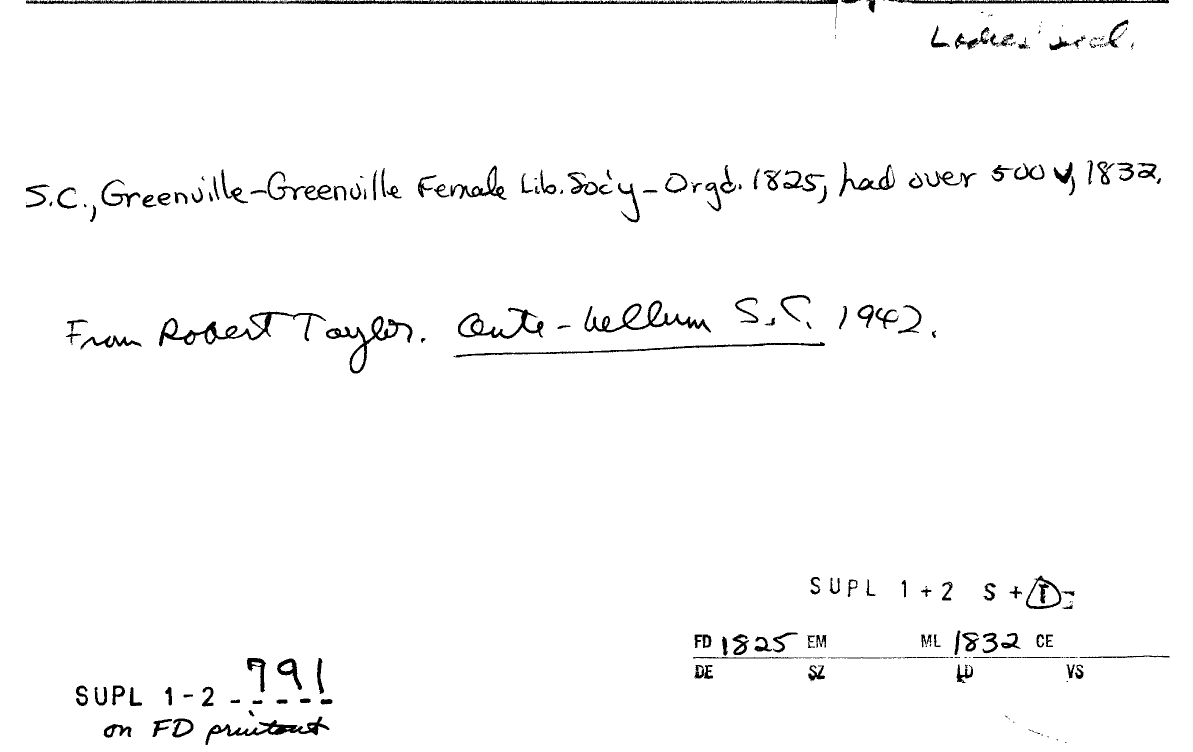 Ladies'
S.C., Greenville-Greenville Female Lib. Soc'y - Orgd. 1825, had over 500 v, 1832.
From Robert Taylor. Ante-bellum S.C. 1942.
SUPL 1+2 S+T
FD 1825 EM ML 1832 CE
DE SZ LD VS
SUPL 1-2 791
on FD printout